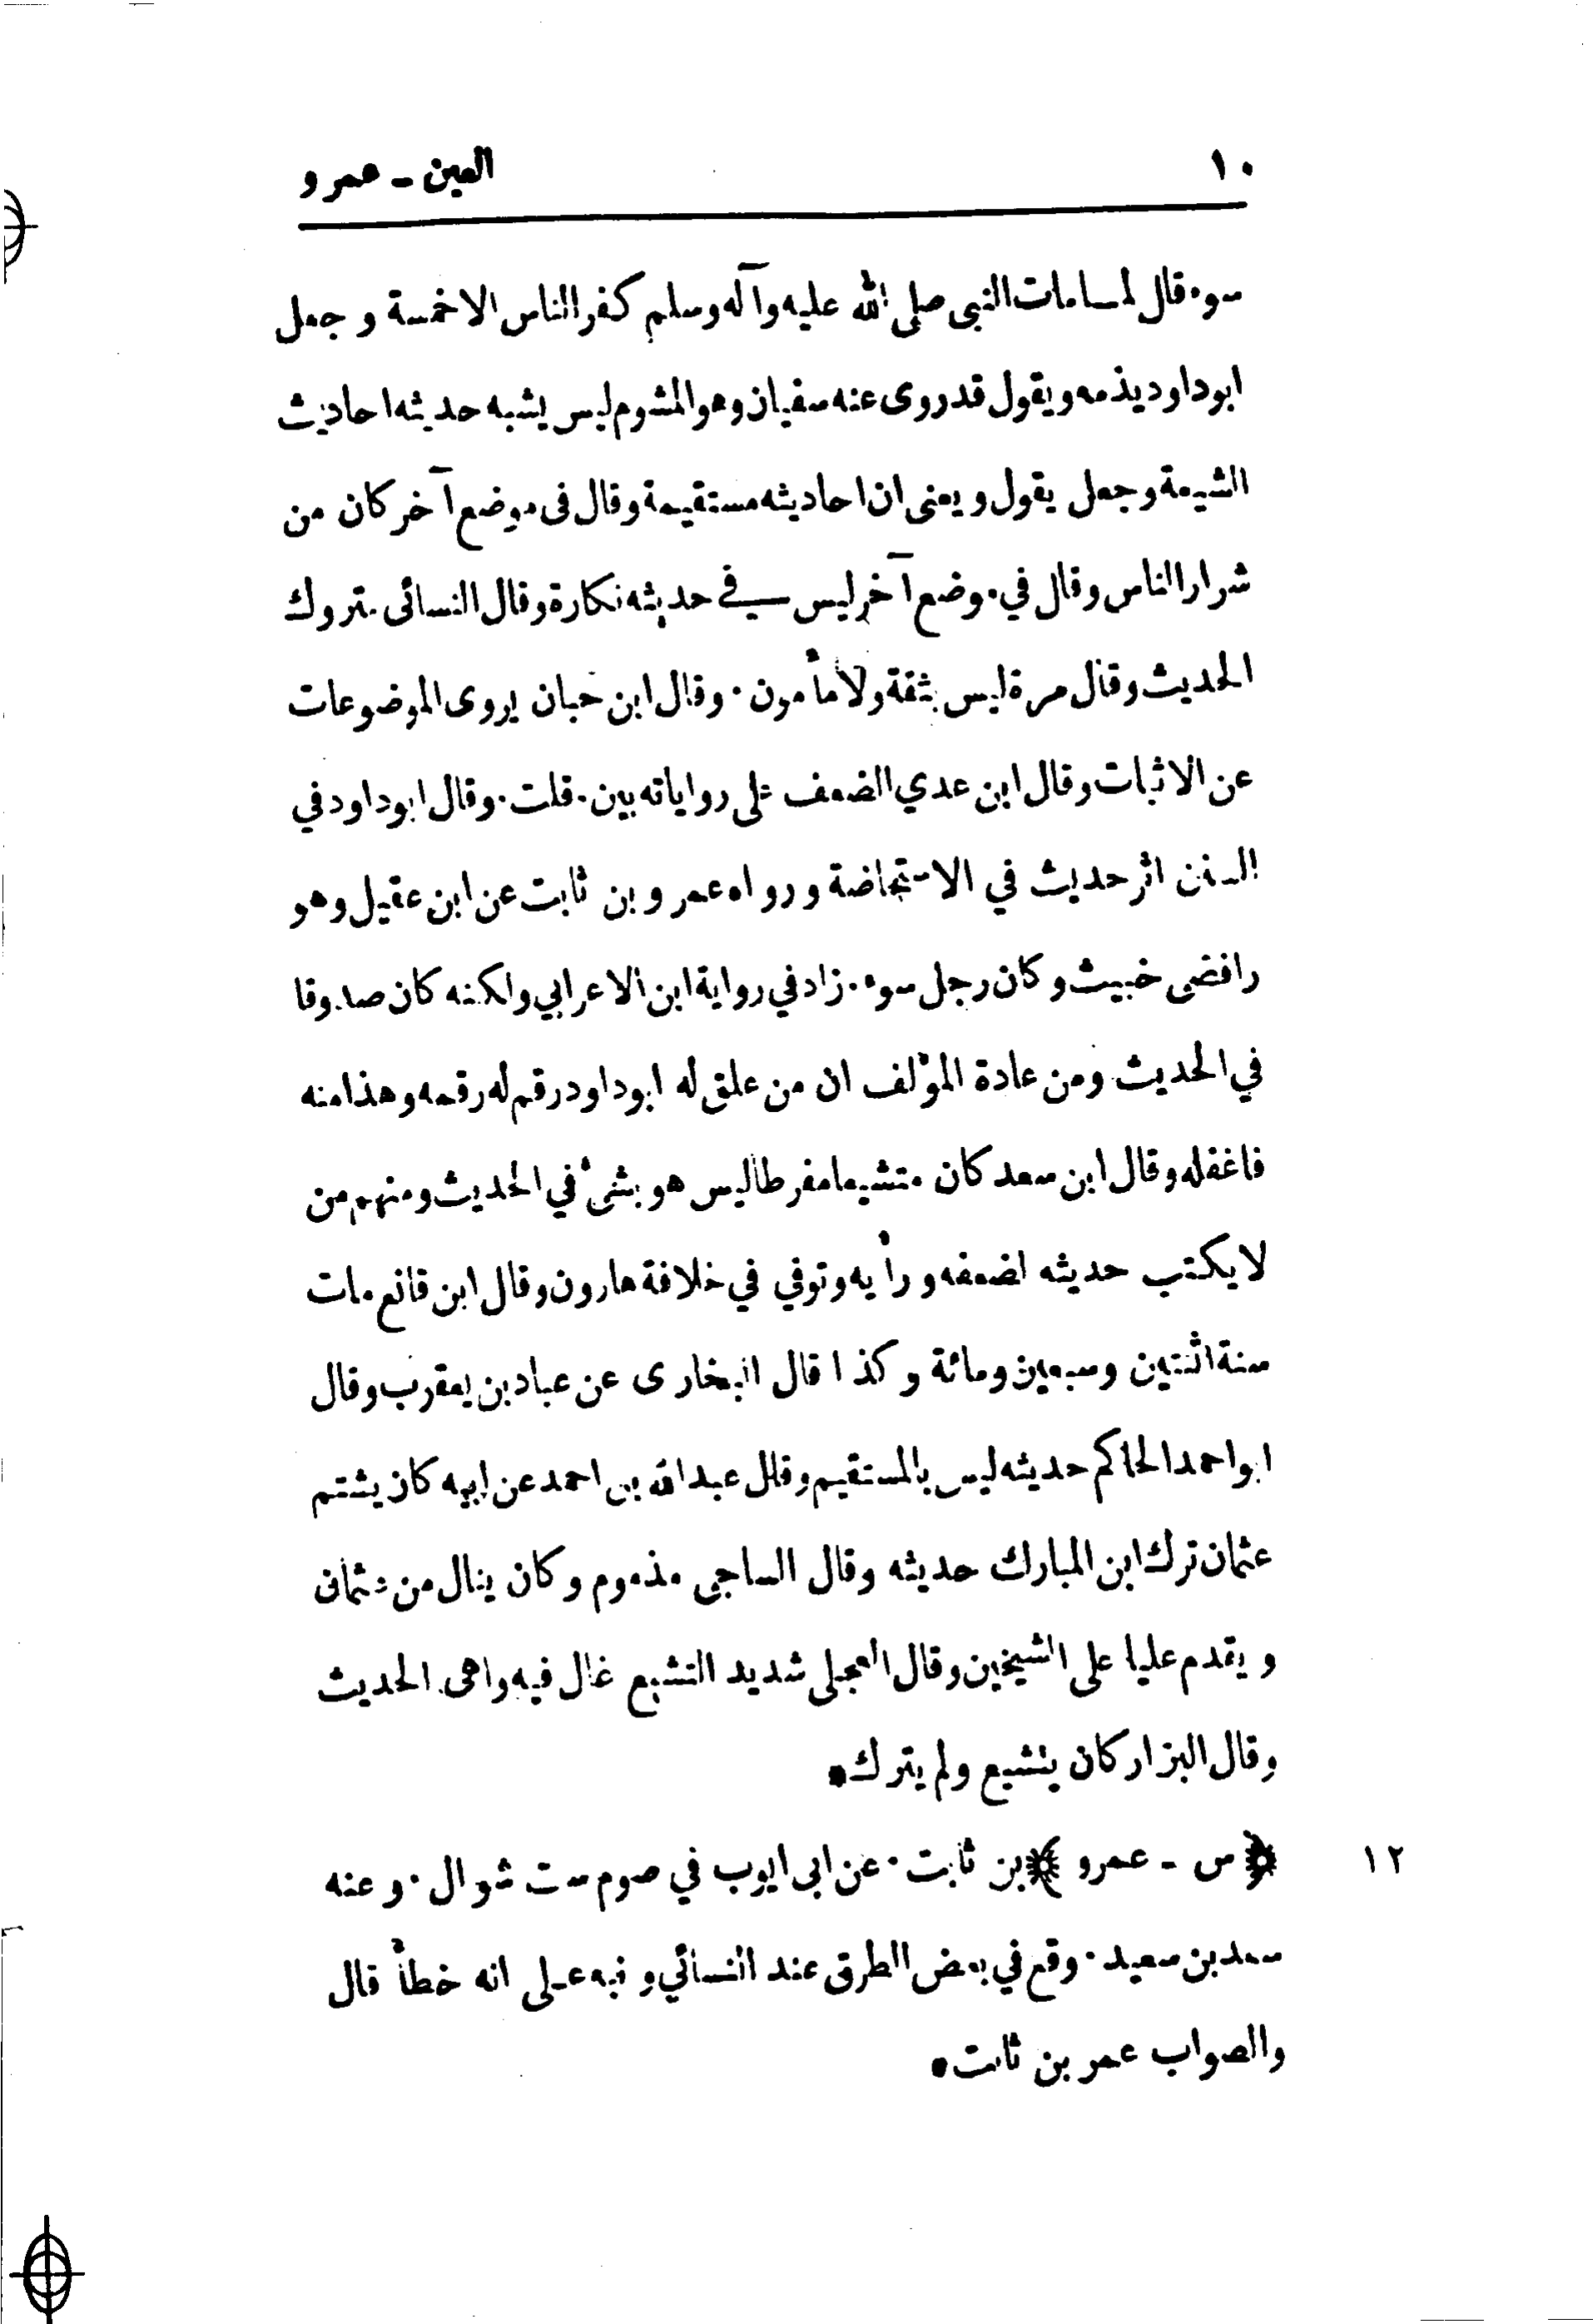 ١٠ العين - عمرو
سوء قال لما مات النبى صلى الله عليه وآله وسلم كفر الناس الا خمسة وجعل
ابو داود يذمه ويقول قد روى عنه سفيان وهو المشوم ليس يشبه حديثه احاديث
الشيعة وجعل يقول ويعنى ان احاديثه مستقيمة وقال فى موضع آخر كان من
شرار الناس وقال في موضع آخر ليس في حديثه نكارة وقال النسائى متروك
الحديث وقال مرة ليس بثقة ولا مأمون · وقال ابن حبان يروى الموضوعات
عن الاثبات وقال ابن عدي الضعف على رواياته بين · قلت · وقال ابو داود في
السنن اثر حديث في الاستحاضة ورواه عمرو بن ثابت عن ابن عقيل وهو
رافضى خبيث وكان رجل سوء · زاد في رواية ابن الاعرابي ولكنه كان صدوقا
في الحديث ومن عادة المؤلف ان من علق له ابو داود رقم له رقمه وهذا منه
فاغفله وقال ابن سعد كان متشيعا مفرطا ليس هو بشئ في الحديث ومنهم من
لا يكتب حديثه لضعفه ورأيه وتوفي في خلافة هارون وقال ابن قانع مات
سنة اثنتين وسبعين ومائة وكذا قال البخارى عن عباد بن يعقوب وقال
ابو احمد الحاكم حديثه ليس بالمستقيم وقال عبد الله بن احمد عن ابيه كان يشتم
عثمان ترك ابن المبارك حديثه وقال الساجى مذموم وكان ينال من عثمان
ويقدم عليا على الشيخين وقال العجلى شديد التشيع غال فيه واهى الحديث
وقال البزار كان يتشيع ولم يترك •
١٢ ﴿ س - عمرو ﴾ بن ثابت · عن ابى ايوب في صوم ست شوال · وعنه
سعد بن سعيد · وقع في بعض الطرق عند النسائي ونبه على انه خطأ قال
والصواب عمر بن ثابت •